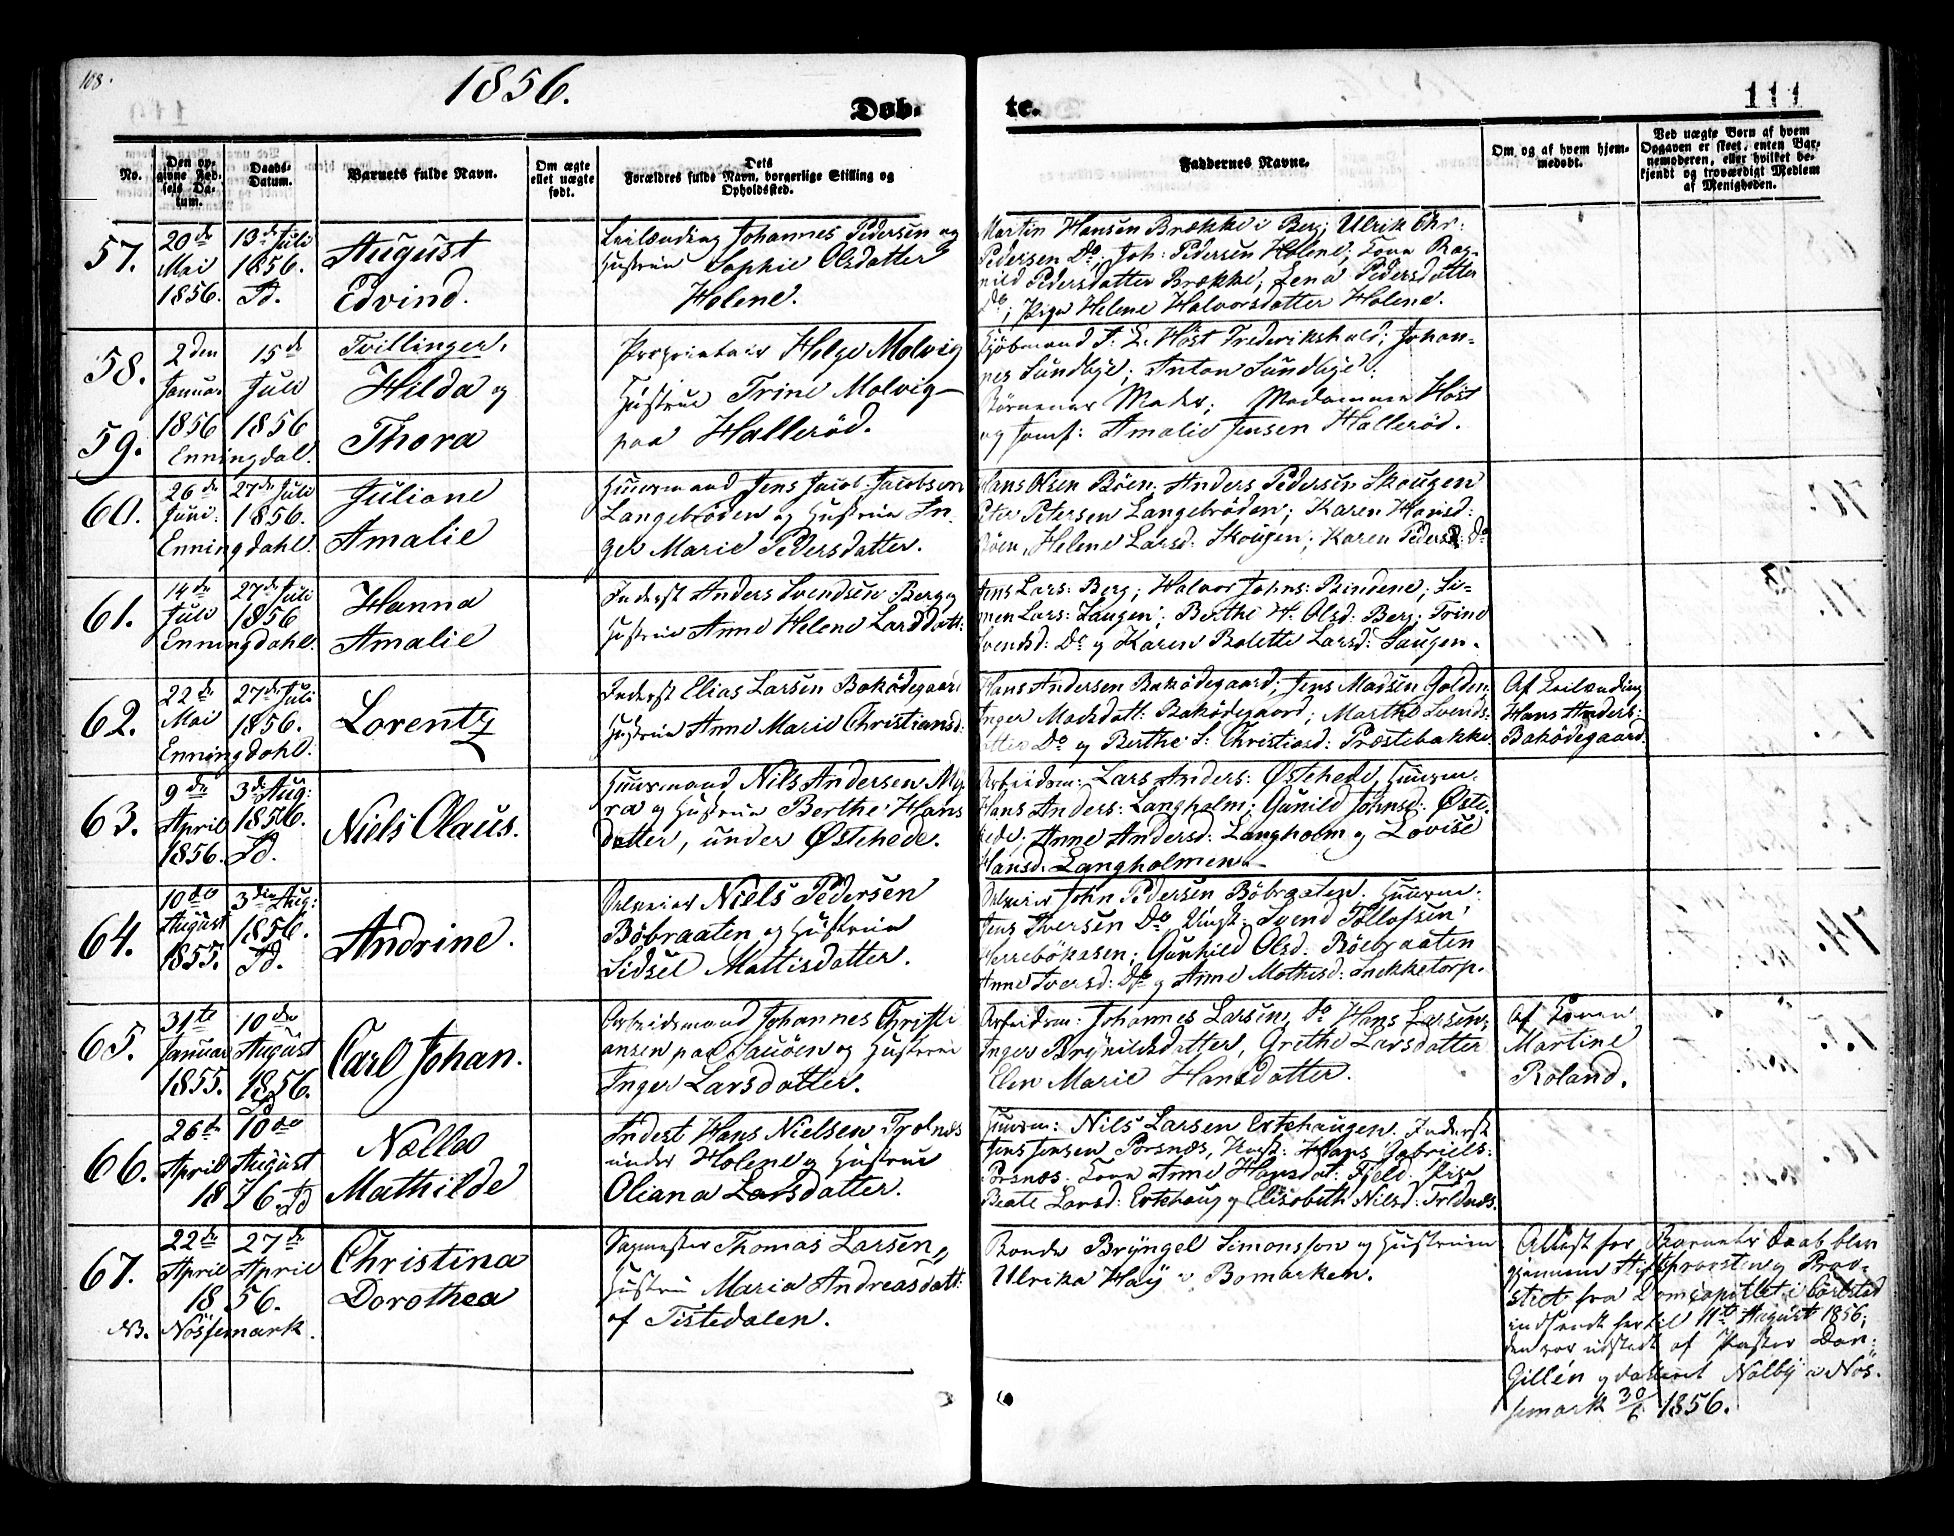 108.
1856.
Døb-
te.
111
No.
Den op-
givne Fød-
sels Da-
tum.
Daabs-
Datum.
Barnets fulde Navn.
Om ægte
ellet uægte
født.
Dets
Forældres fulde Navn, borgerlige Stilling og
Opholdssted.
Faddernes Navne.
Om og af hvem hjem-
medøbt.
Ved uægte Børn af hvem
Opgaven er skeet, enten Bar-
nemoderen, eller hvilket be-
kjendt og troværdigt Medlem
af Menigheden.
57.
20de
Mai
1856.
13de Juli
1856.
Id.
August
Edvind.
Leilænding Johannes Pedersen og
Hustrue Sophie Olsdatter
Holene.
Martin Hansen Brække i Berg; Ulrik Chr:
Pedersen Do; Joh: Pedersen Holene; Kone Rag-
nild Pedersdatter Brække; Lena Pedersdatter
Do; Pige Helene Halvorsdatter Holene.
58.
59.
2den
Januar
1856
15de
Juli
1856
Enningdal.
Tvillinger,
Hilda og
Thora
Proprietair Helge Molvig
Hustrue Trine Molvig
paa Hallerød.
Kjøbmand P. L. Høst Frederikshald; Johan-
nes Sundbye; Anton Sundbye:
Børnenes Moder; Madamme Høst
og Jomf: Amalie Jensen Hallerød.
60.
26de
Juni:
27de Juli
1856.
Enningdahl.
Juliane
Amalie
Huusmand Jens Jacob Jacobsen
Langebrøden og Hustrue In-
ger Marie Pedersdatter.
Hans Olsen Bøen; Anders Pedersen Skougen
Peter Petersen Langebrøden; Karen Hansd:
Bøen, Helene Larsd: Skougen; Karen Pedersd: Do
61.
14de
Juli
27de Juli
1856
Enningdahl.
Hanna
Amalie
Inderst Anders Svendsen Berg og
Hustrue Anne Helene Larsdatt:
Jens Lars: Berg; Halvor Johns: Bindene; Si-
men Lars: Saugen; Berthe H. Olsd: Berg; Trine
Svendsd: Do og Karen Bolette Larsd: Saugen.
62.
22de
Mai
27de Juli
1856.
Enningdahl.
Lorentz
Inderst Elias Larsen Bakødegaard
Hustrue Anne Marie Christiansd:
Hans Andersen Bakødegaard; Jens Madsen Golden;
Inger Madsdatt: Bakødegaard; Marthe Svends-
datter Do og Berthe S: Christiansd: Præstebakke.
Af Leilænding
Hans Anders:
Bakødegaard.
63.
9de
April
1856.
3de Aug:
1856.
Id.
Niels Olaus.
Huusmand Nils Andersen My-
ra og Hustrue Berthe Hans
datter, under Østehede.
Arbeidsm: Lars Anders: Østehede, Huusm.
Hans Anders: Langholm; Gunild Johnsd: Øste-
hede; Anne Andersd: Langholm og Lovise
Hansd: Langholmen.
64.
10de
August
1855.
3de Aug:
1856.
Id.
Andrine.
Selveier Niels Pedersen
Bøbraaten og Hustrue
Sidsel Mattisdatter.
Selveier John Pedersen Bøbraaten. Huusm:
Jens Iversen Do Ungk: Svend Tollofsen
Herrebøkasen; Gunhild Olsd: Bøebraaten
Anne Iversd: Do og Anne Mathisd: Snekketorp.
65.
31te
Januar
1855.
10de
August
1856.
Id
Carl Johan.
Arbeidsmand Johannes Christi
ansen paa Sauøen og Hustrue
Inger Larsdatter.
Arbeidsm: Johannes Larsen, Do Hans Larsen;
Inger Brynildsdatter, Grethe Larsdatter
Elen Marie Hansdatter.
Af Konen
Martine
Roland.
66.
26de
April
10de
August
1856. Id
Nella
Mathilde
Inderst Hans Nielsen
under Holene og Hustrue
Oliana Larsdatter.
Huusm: Nils Larsen Ertehaugen. Inderst
Jens Jensen Porsnæs, Ungk: Hans Gabriels:
Porsnæs. Kone Anne Hansdat: Fjeld. Pige
Beate Larsd: Ertehaug og Elisabeth Nilsd:
67.
22de
April
27de
April
1856.
NB. Nössemark.
Christina
Dorothea
Sagmester Thomas Larsen,
Hustru Maria Andreasdatt:
af Tistedalen.
Bonde Bryngel Simonsson og Hustruen
Ulrika Haÿ i Bomarken.
Attest for Barnets Daab blev
gjennem Stiftsprovsten og Prov-
stiet fra Domcapitlet i Carlstad
indsendt hertil 11te August 1856;
den var udstedt af Pastor Dan:
Gillén og dateret Nolby i Nös-
semark 30/6 1856.